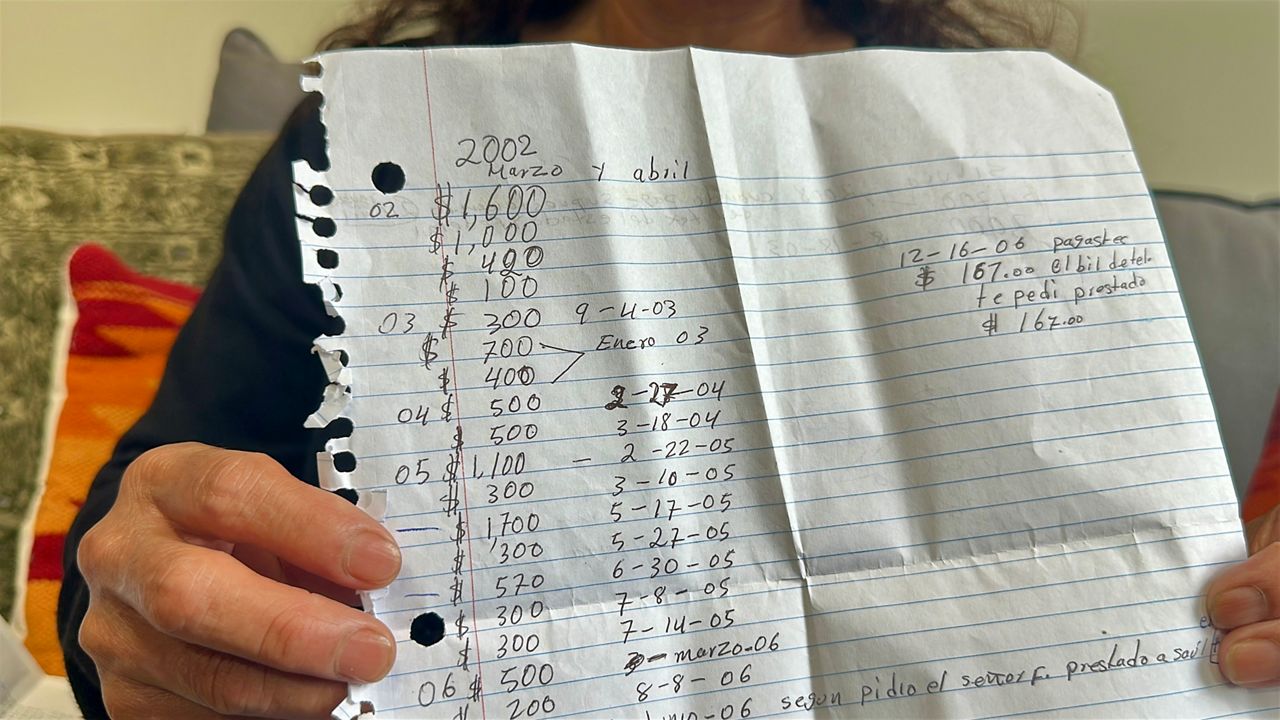 2002
Marzo y abril
02 $1,600
$1,000
$ 400
$ 100
03 $ 300 9-4-03
$ 700 Enero 03
$ 400
04 $ 500 2-27-04
$ 500 3-18-04
05 $1,100 - 2-22-05
$ 300 3-10-05
$ 1,700 5-17-05
$ 300 5-27-05
$ 570 6-30-05
$ 300 7-8-05
$ 300 7-14-05
06 $ 500 marzo-06
$ 200 8-8-06
-06 segun pidio el señor F. prestado a saúl
12-16-06 pagaste
$ 167.00 el bil de tel.
te pedi prestado
$ 167.00